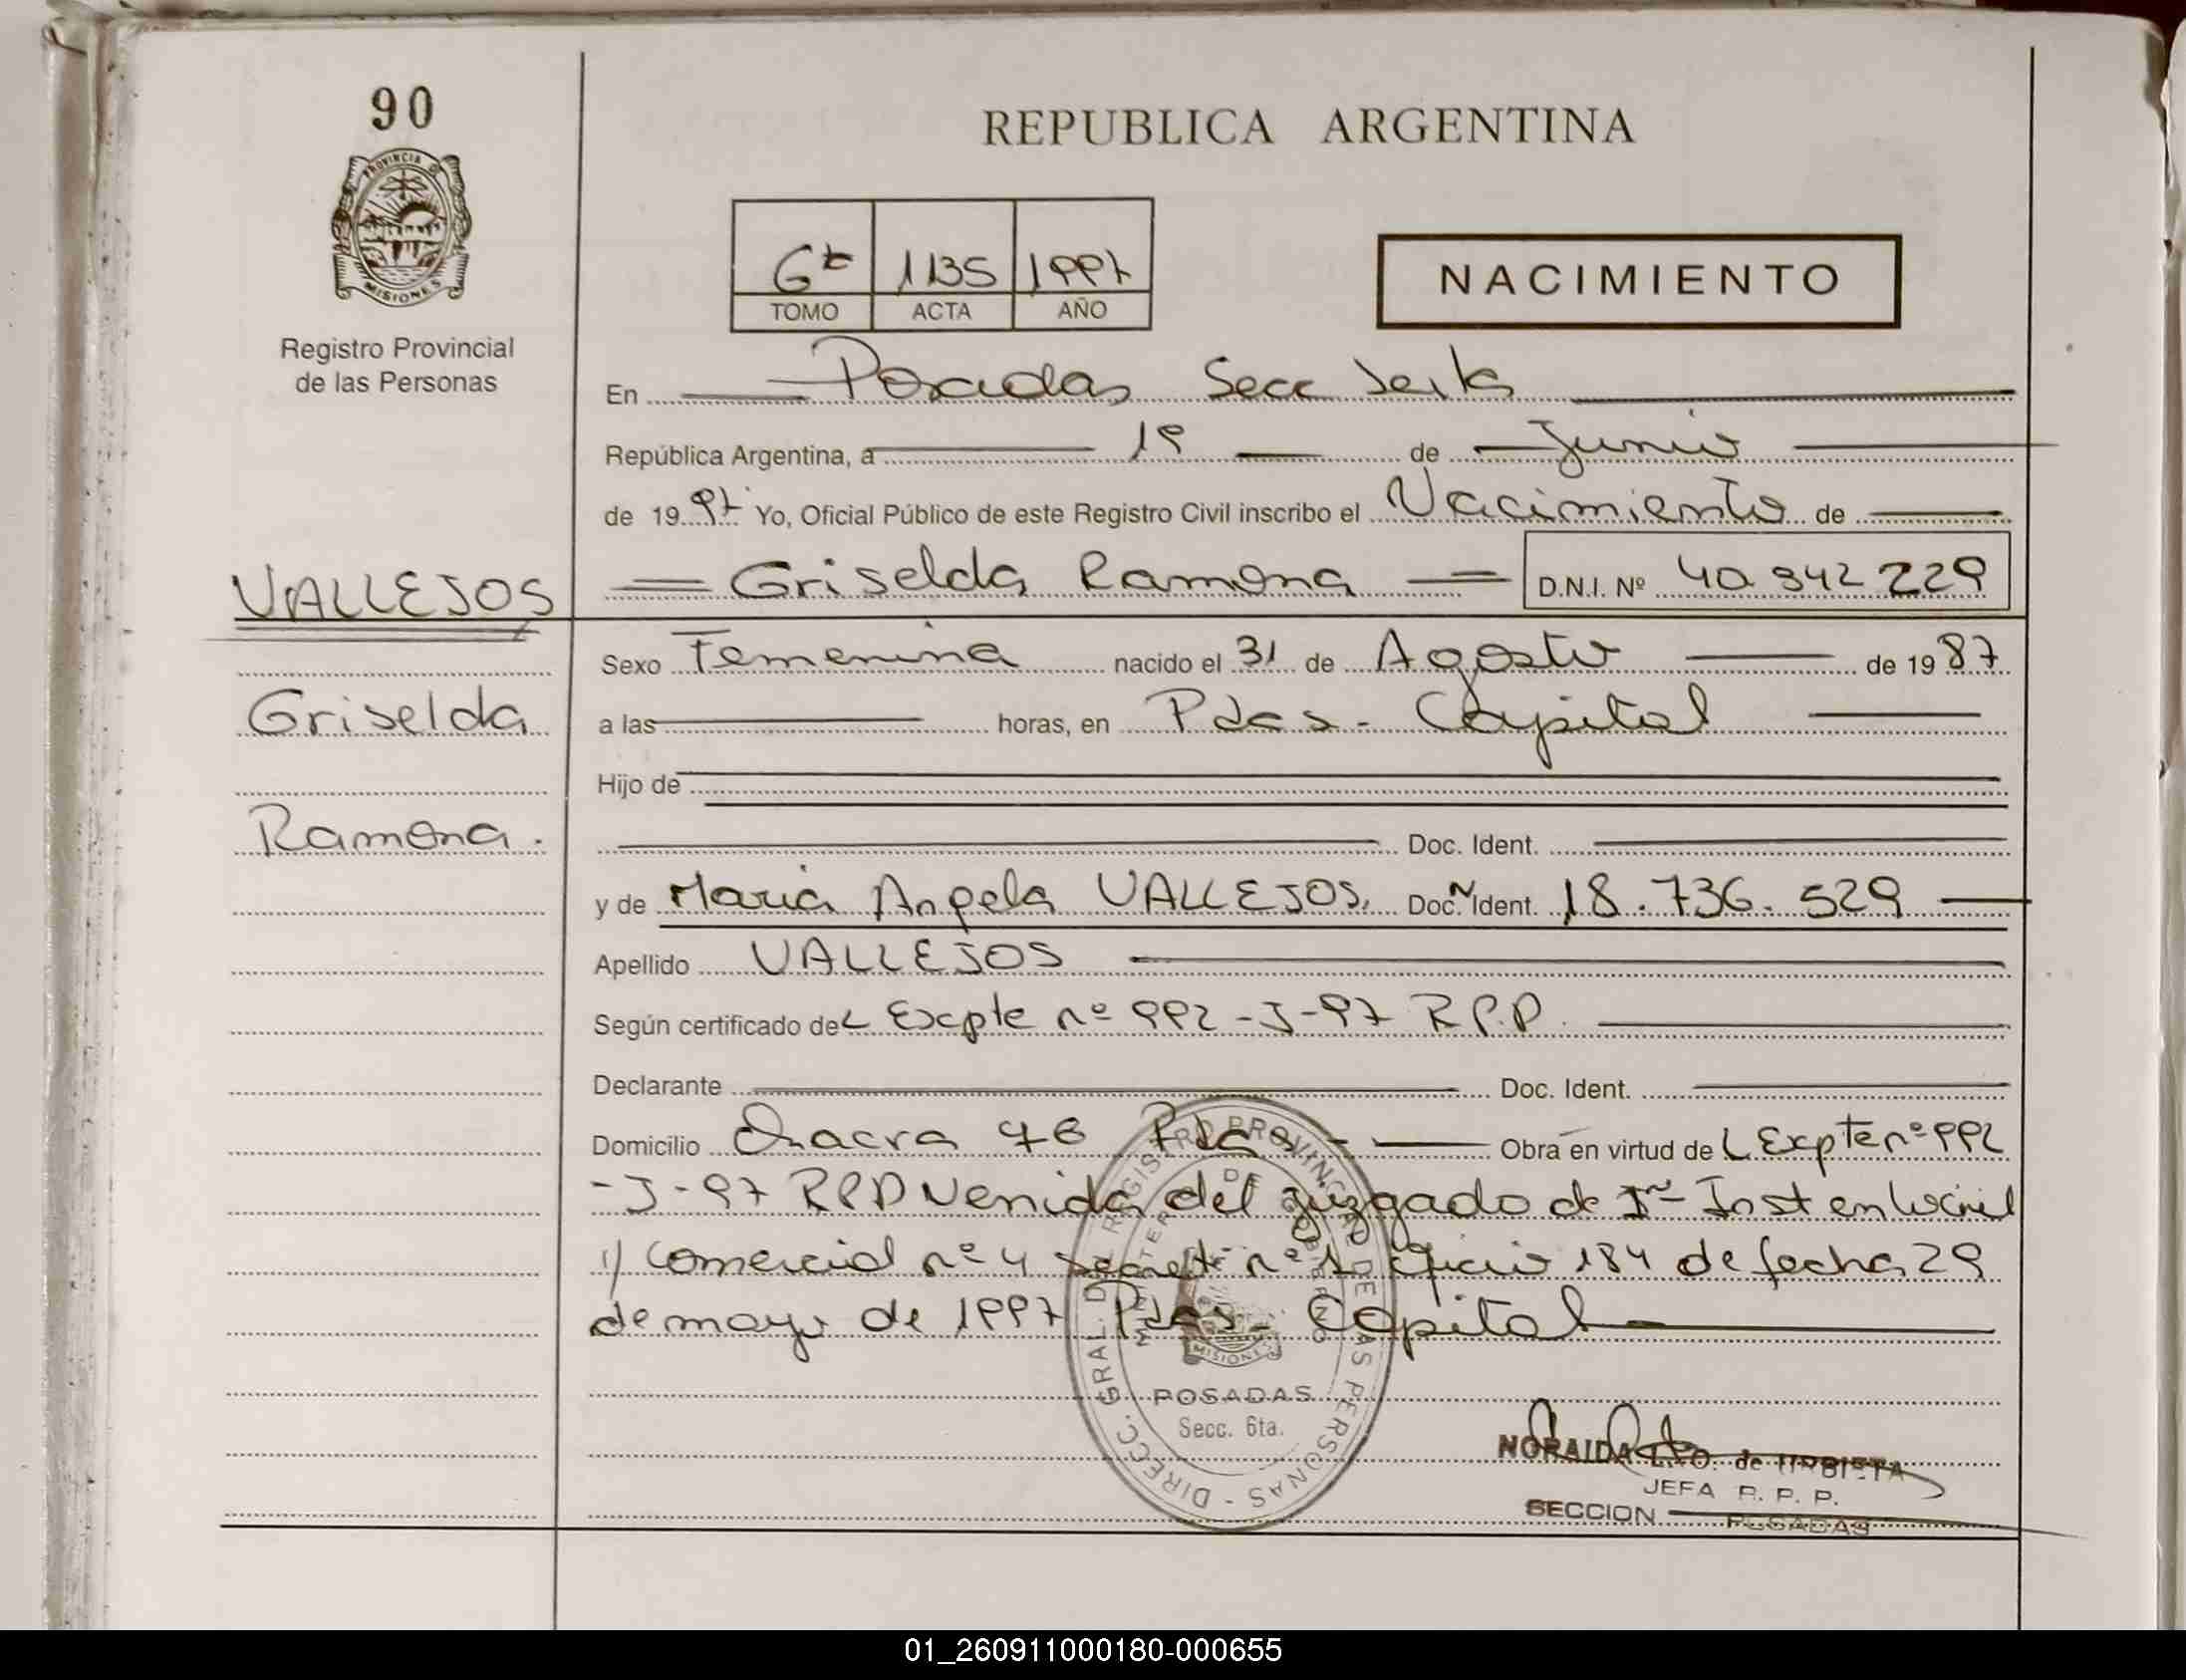 90
PROVINCIA DE
MISIONES
Registro Provincial
de las Personas
REPUBLICA ARGENTINA
6ta 1135 1997
TOMO ACTA AÑO
NACIMIENTO
En Posadas Secc Sexta
República Argentina, a 19 de Junio
de 1997 Yo, Oficial Público de este Registro Civil inscribo el Nacimiento de
VALLEJOS Griselda Ramona D.N.I. Nº 40.942.229
Sexo Femenina nacido el 31 de Agosto de 1987
Griselda a las horas, en Pdas - Capital
Hijo de
Ramona. Doc. Ident.
y de Maria Angela VALLEJOS, Doc. Ident. 18.736.529
Apellido VALLEJOS
Según certificado del Expte nº 992-J-97 R.P.P.
Declarante Doc. Ident.
Domicilio Chacra 76 Pdas - Obra en virtud del Expte nº 992
-J-97 RPP Venida del juzgado de 1ra Inst en lo civil
y Comercial nº 4 Secret. nº 1 Oficio 184 de fecha 29
de mayo de 1997 Pdas - Capital
DIRECC. GRAL. DEL REGISTRO PROVINCIAL DE LAS PERSONAS
MINISTERIO DE GOBIERNO
MISIONES
POSADAS
Secc. 6ta.
NORAIDA de URBIETA
JEFA R. P. P.
SECCION POSADAS
01_260911000180-000655